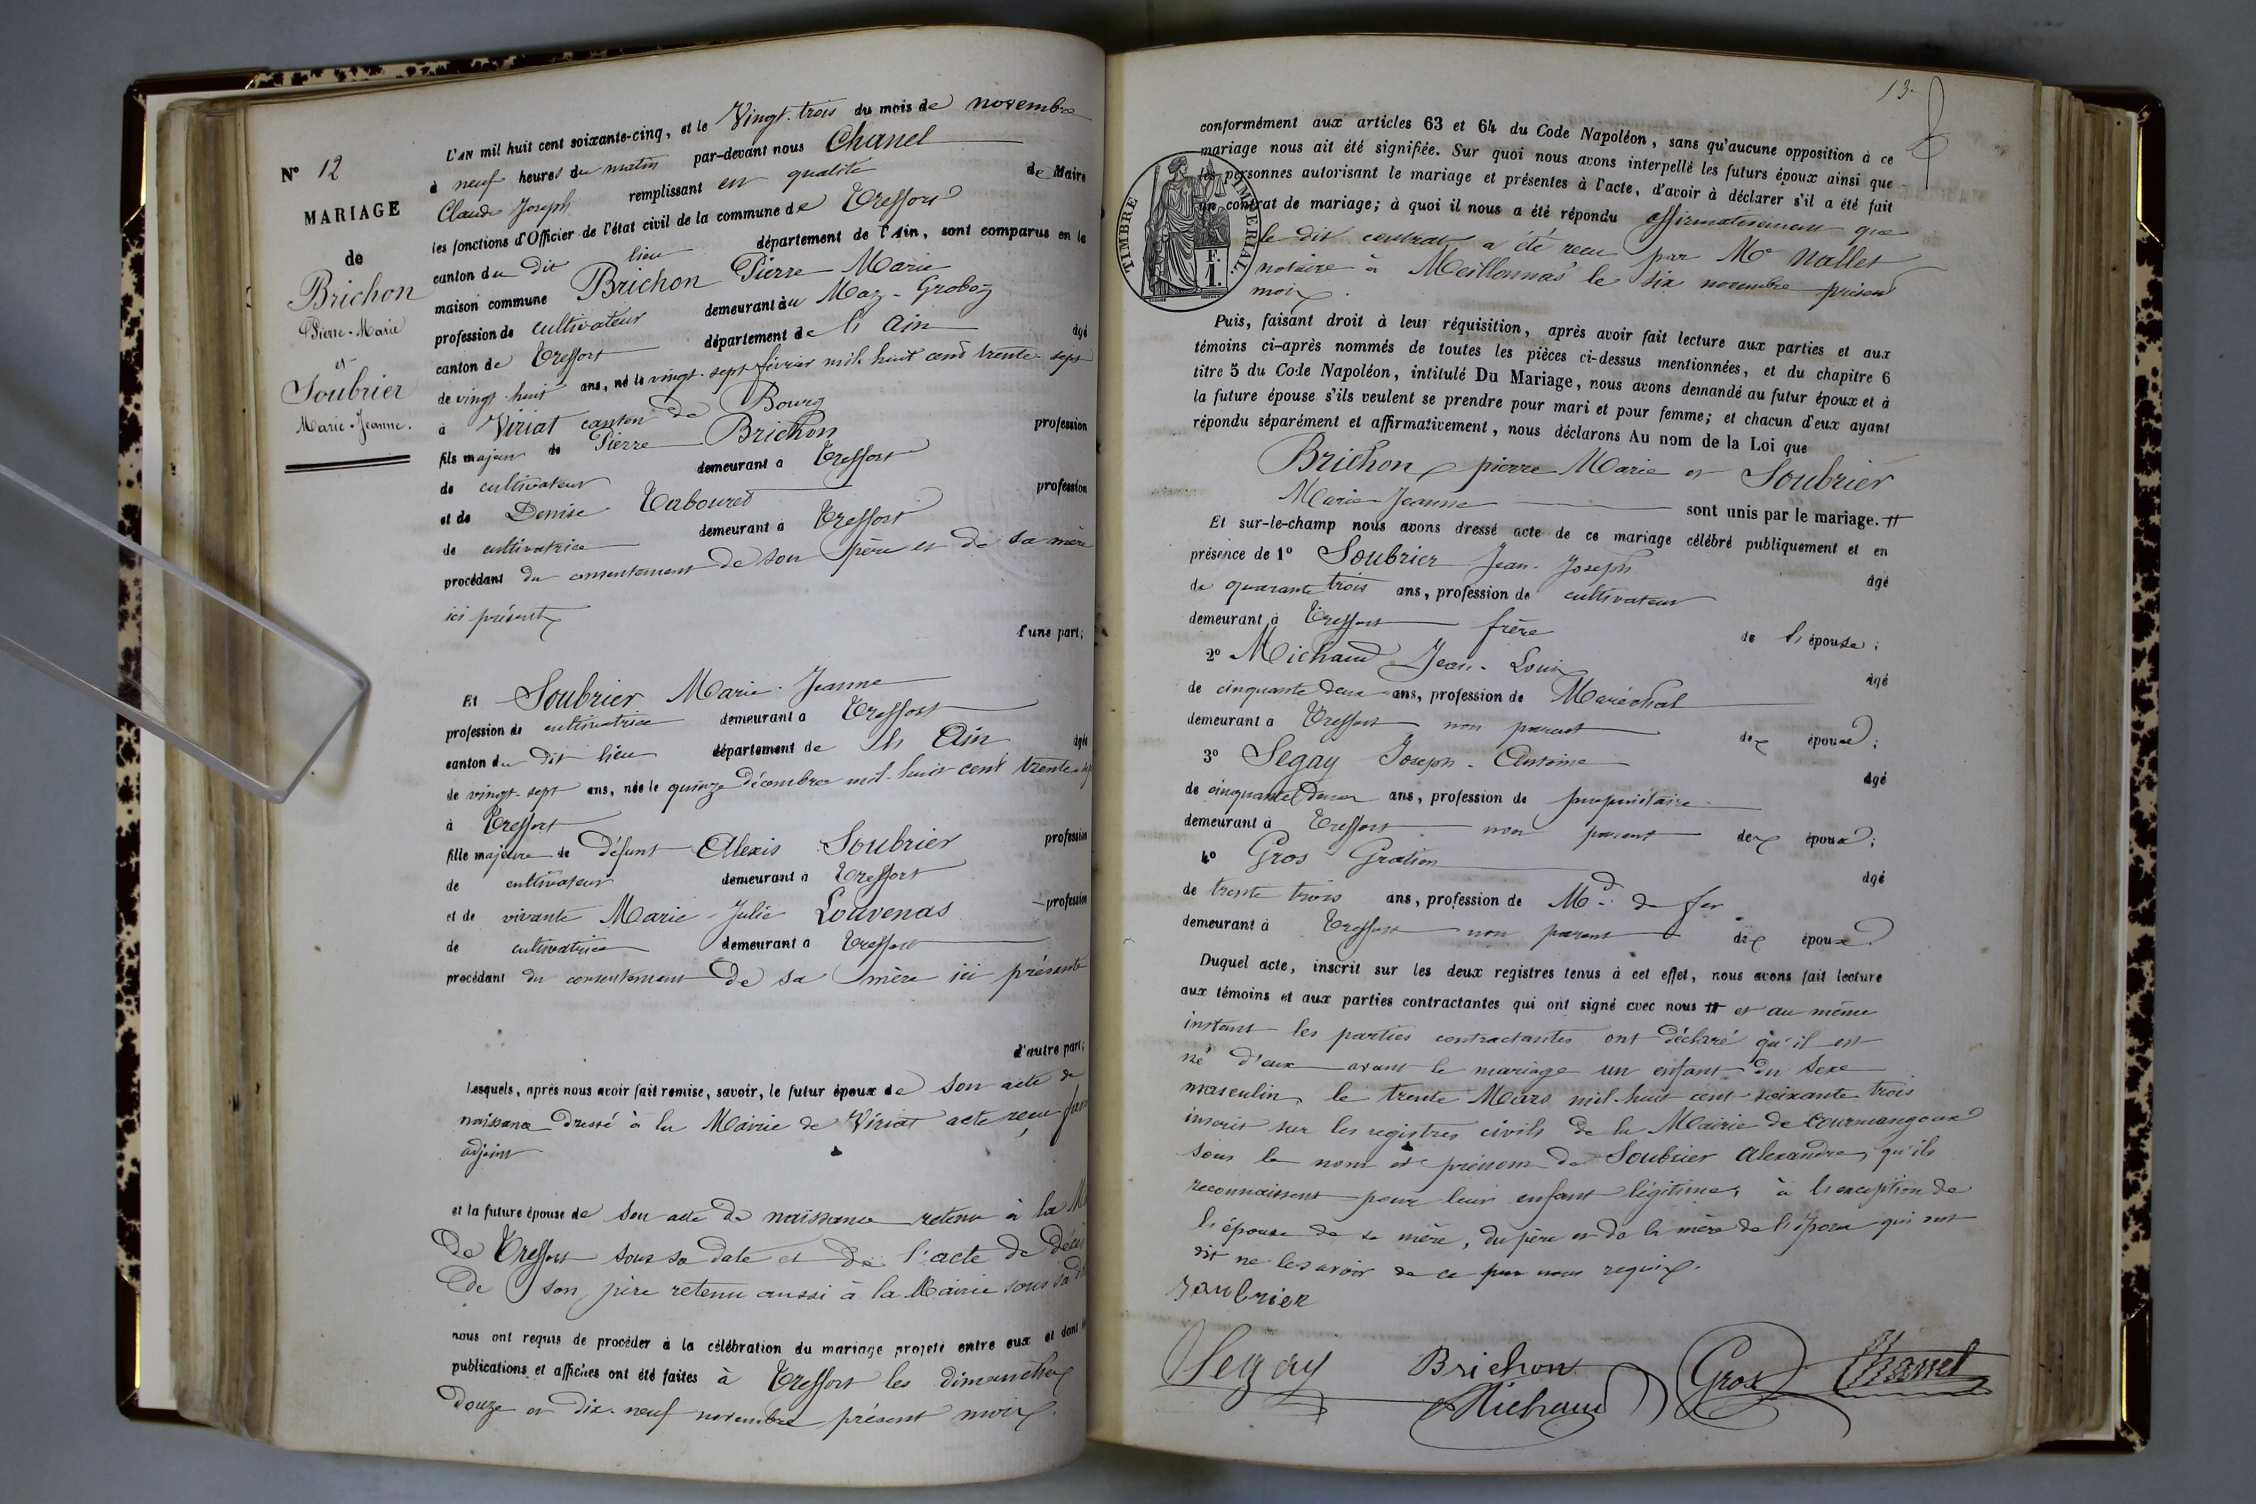 N° 12
MARIAGE
de
Brichon
Pierre-Marie
et
Soubrier
Marie-Jeanne.
L'AN mil huit cent soixante-cinq, et le Vingt-trois du mois de novembre
à neuf heures du matin par-devant nous Chanel
Claude Joseph remplissant en qualité de Maire
les fonctions d'Officier de l'état civil de la commune de Treffort
canton du dit lieu département de l'Ain, sont comparus en la
maison commune Brichon Pierre Marie
profession de cultivateur demeurant au Maz-Groboz
canton de Treffort département de l'Ain âgé
de vingt-huit ans, né le vingt-sept février mil huit cent trente-sept
à Viriat canton de Bourg
fils majeur de Pierre Brichon profession
de cultivateur demeurant à Treffort
et de Denise Tabouret profession
de cultivatrice demeurant à Treffort
procédant du consentement de son père et de sa mère
ici présents
d'une part;
Et Soubrier Marie-Jeanne
profession de cultivatrice demeurant à Treffort
canton du dit lieu département de l'Ain âgée
de vingt-sept ans, née le quinze décembre mil-huit cent trente-sept
à Treffort
fille majeure de défunt Alexis Soubrier profession
de cultivateur demeurant à Treffort
et de vivante Marie-Julie Louvenas profession
de cultivatrice demeurant à Treffort
procédant du consentement de sa mère ici présente
d'autre part;
Lesquels, après nous avoir fait remise, savoir, le futur époux de son acte de
naissance dressé à la Mairie de Viriat acte reçu
adjoint
et la future épouse de son acte de naissance retenu à la
de Treffort sous sa date et de l'acte de décès
de son père retenu aussi à la Mairie sous sa
nous ont requis de procéder à la célébration du mariage projeté entre eux et dont les
publications et affiches ont été faites à Treffort les dimanches
douze et dix-neuf novembre présent mois.
13.
conformément aux articles 63 et 64 du Code Napoléon, sans qu'aucune opposition à ce
mariage nous ait été signifiée. Sur quoi nous avons interpellé les futurs époux ainsi que
les personnes autorisant le mariage et présentes à l'acte, d'avoir à déclarer s'il a été fait
un contrat de mariage; à quoi il nous a été répondu affirmativement que
le dit contrat a été reçu par Me Nallet
notaire à Meillonnas le six novembre présent
mois.
TIMBRE IMPÉRIAL.
F.
1.
Puis, faisant droit à leur réquisition, après avoir fait lecture aux parties et aux
témoins ci-après nommés de toutes les pièces ci-dessus mentionnées, et du chapitre 6
titre 5 du Code Napoléon, intitulé Du Mariage, nous avons demandé au futur époux et à
la future épouse s'ils veulent se prendre pour mari et pour femme; et chacun d'eux ayant
répondu séparément et affirmativement, nous déclarons Au nom de la Loi que
Brichon pierre Marie et Soubrier
Marie-Jeanne sont unis par le mariage. #
Et sur-le-champ nous avons dressé acte de ce mariage célébré publiquement et en
présence de 1° Soubrier Jean-Joseph âgé
de quarante trois ans, profession de cultivateur
demeurant à Treffort frère de l'épouse;
2° Michaud Jean-Louis âgé
de cinquante deux ans, profession de Maréchal
demeurant à Treffort non parent des époux;
3° Segay Joseph-Antoine âgé
de cinquante deux ans, profession de propriétaire
demeurant à Treffort non parent des époux;
4° Gros Gratien âgé
de trente trois ans, profession de Md. de fer
demeurant à Treffort non parent des époux
Duquel acte, inscrit sur les deux registres tenus à cet effet, nous avons fait lecture
aux témoins et aux parties contractantes qui ont signé avec nous # et au même
instant les parties contractantes ont déclaré qu'il est
né d'eux avant le mariage un enfant du sexe
masculin, le trente Mars mil-huit cent soixante trois
inscrit sur les registres civils de la Mairie de Courmangoux
sous le nom et prénom de Soubrier Alexandre, qu'ils
reconnaissent pour leur enfant légitime, à l'exception de
l'épouse de sa mère, du père et de la mère de l'époux qui ont
dit ne le savoir de ce par nous requis.
Soubrier
Segay Brichon Michaud Gros Chanel